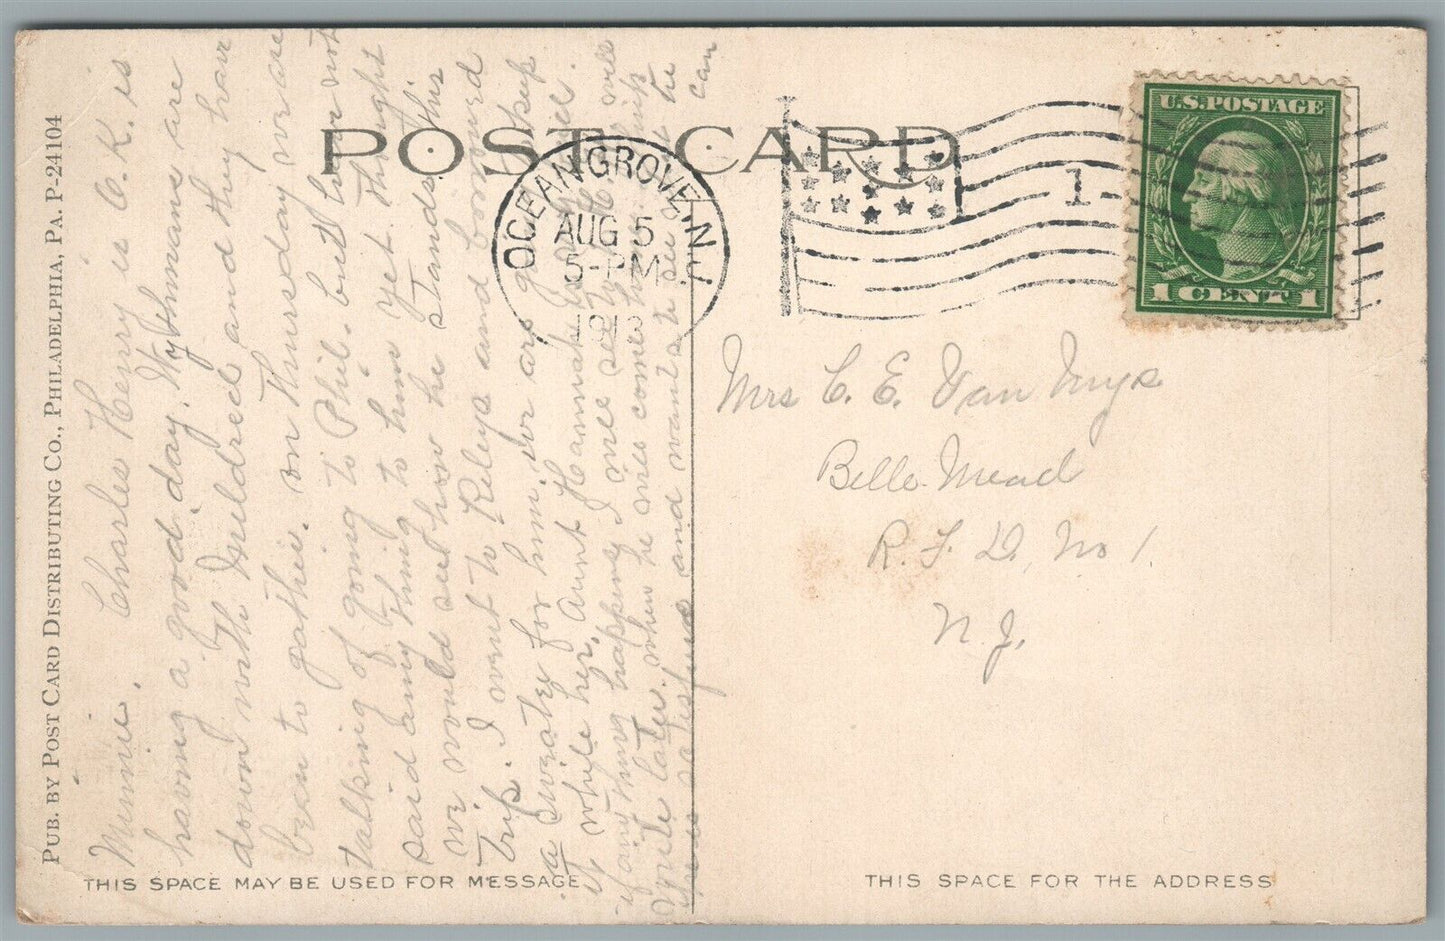 PUB. BY POST CARD DISTRIBUTING CO., PHILADELPHIA, PA. P-24104
POST CARD
OCEAN GROVE, N.J.
AUG 5
5-PM
1913
1
U.S. POSTAGE
1 CENT 1
Minnie. Charles Henry is O.K. is
having a good day. Wyckmans are
down with Mildred and they have
been to gather. on Thursday we are
talking of going to Phil. but have not
said any thing to him yet. Thought
we would see how he stands this
trip. I went to Rileys and borrowed
a sweater for him. We are
while her. Aunt Hannah
if any thing happens I will
write later. when he will come
and wants to see
can
Mrs C. E. Van Nuys
Belle Mead
R. F. D. No 1.
N. J.
THIS SPACE MAY BE USED FOR MESSAGE
THIS SPACE FOR THE ADDRESS